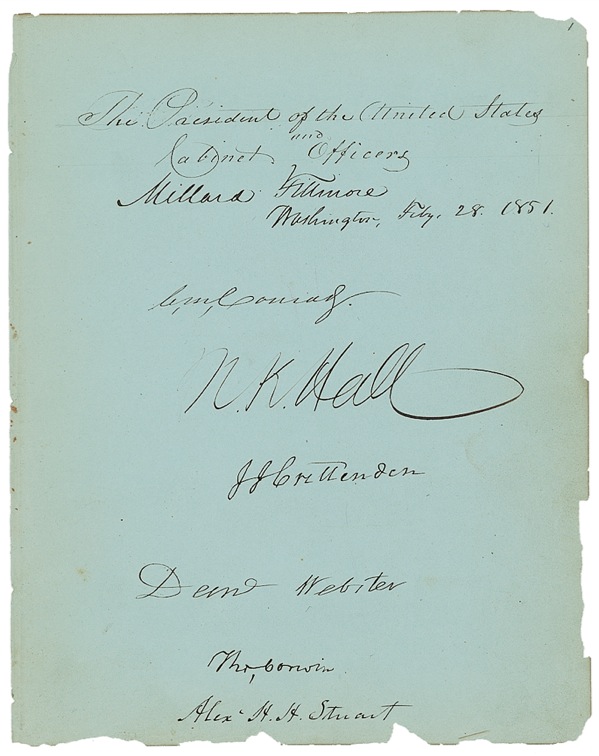 The President of the United States
and
Cabinet Officers
Millard Fillmore
Washington, Feby. 28. 1851.
C. M. Conrad.
N. K. Hall
J J Crittenden
Danl Webster
Tho. Corwin.
Alex. H. H. Stuart